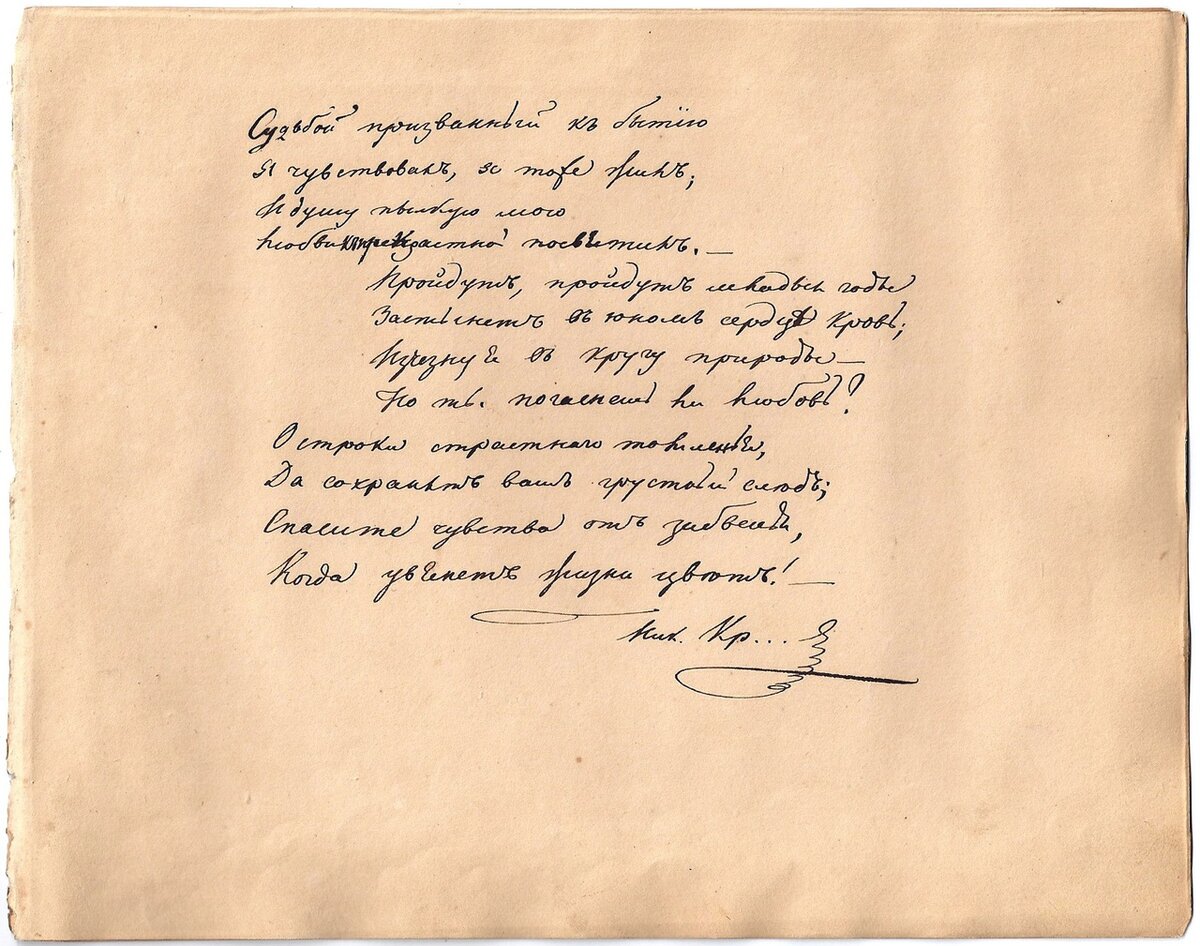 Судьбой призванный къ бытію
Я чувствовалъ, я тоже жилъ;
И душу пылкую мою
Любви прекрасной посвятилъ. —
Пройдутъ, пройдутъ младые годы
Застынетъ въ юномъ сердцѣ кровь;
Изчезну я въ кругу природы —
Но ты. погаснешь ли любовь?
О строки страстнаго томленья,
Да сохранятъ васъ грустный слѣдъ;
Спасите чувства отъ забвенья,
Когда увянетъ жизни цвѣтъ! —
Ник. Кр...